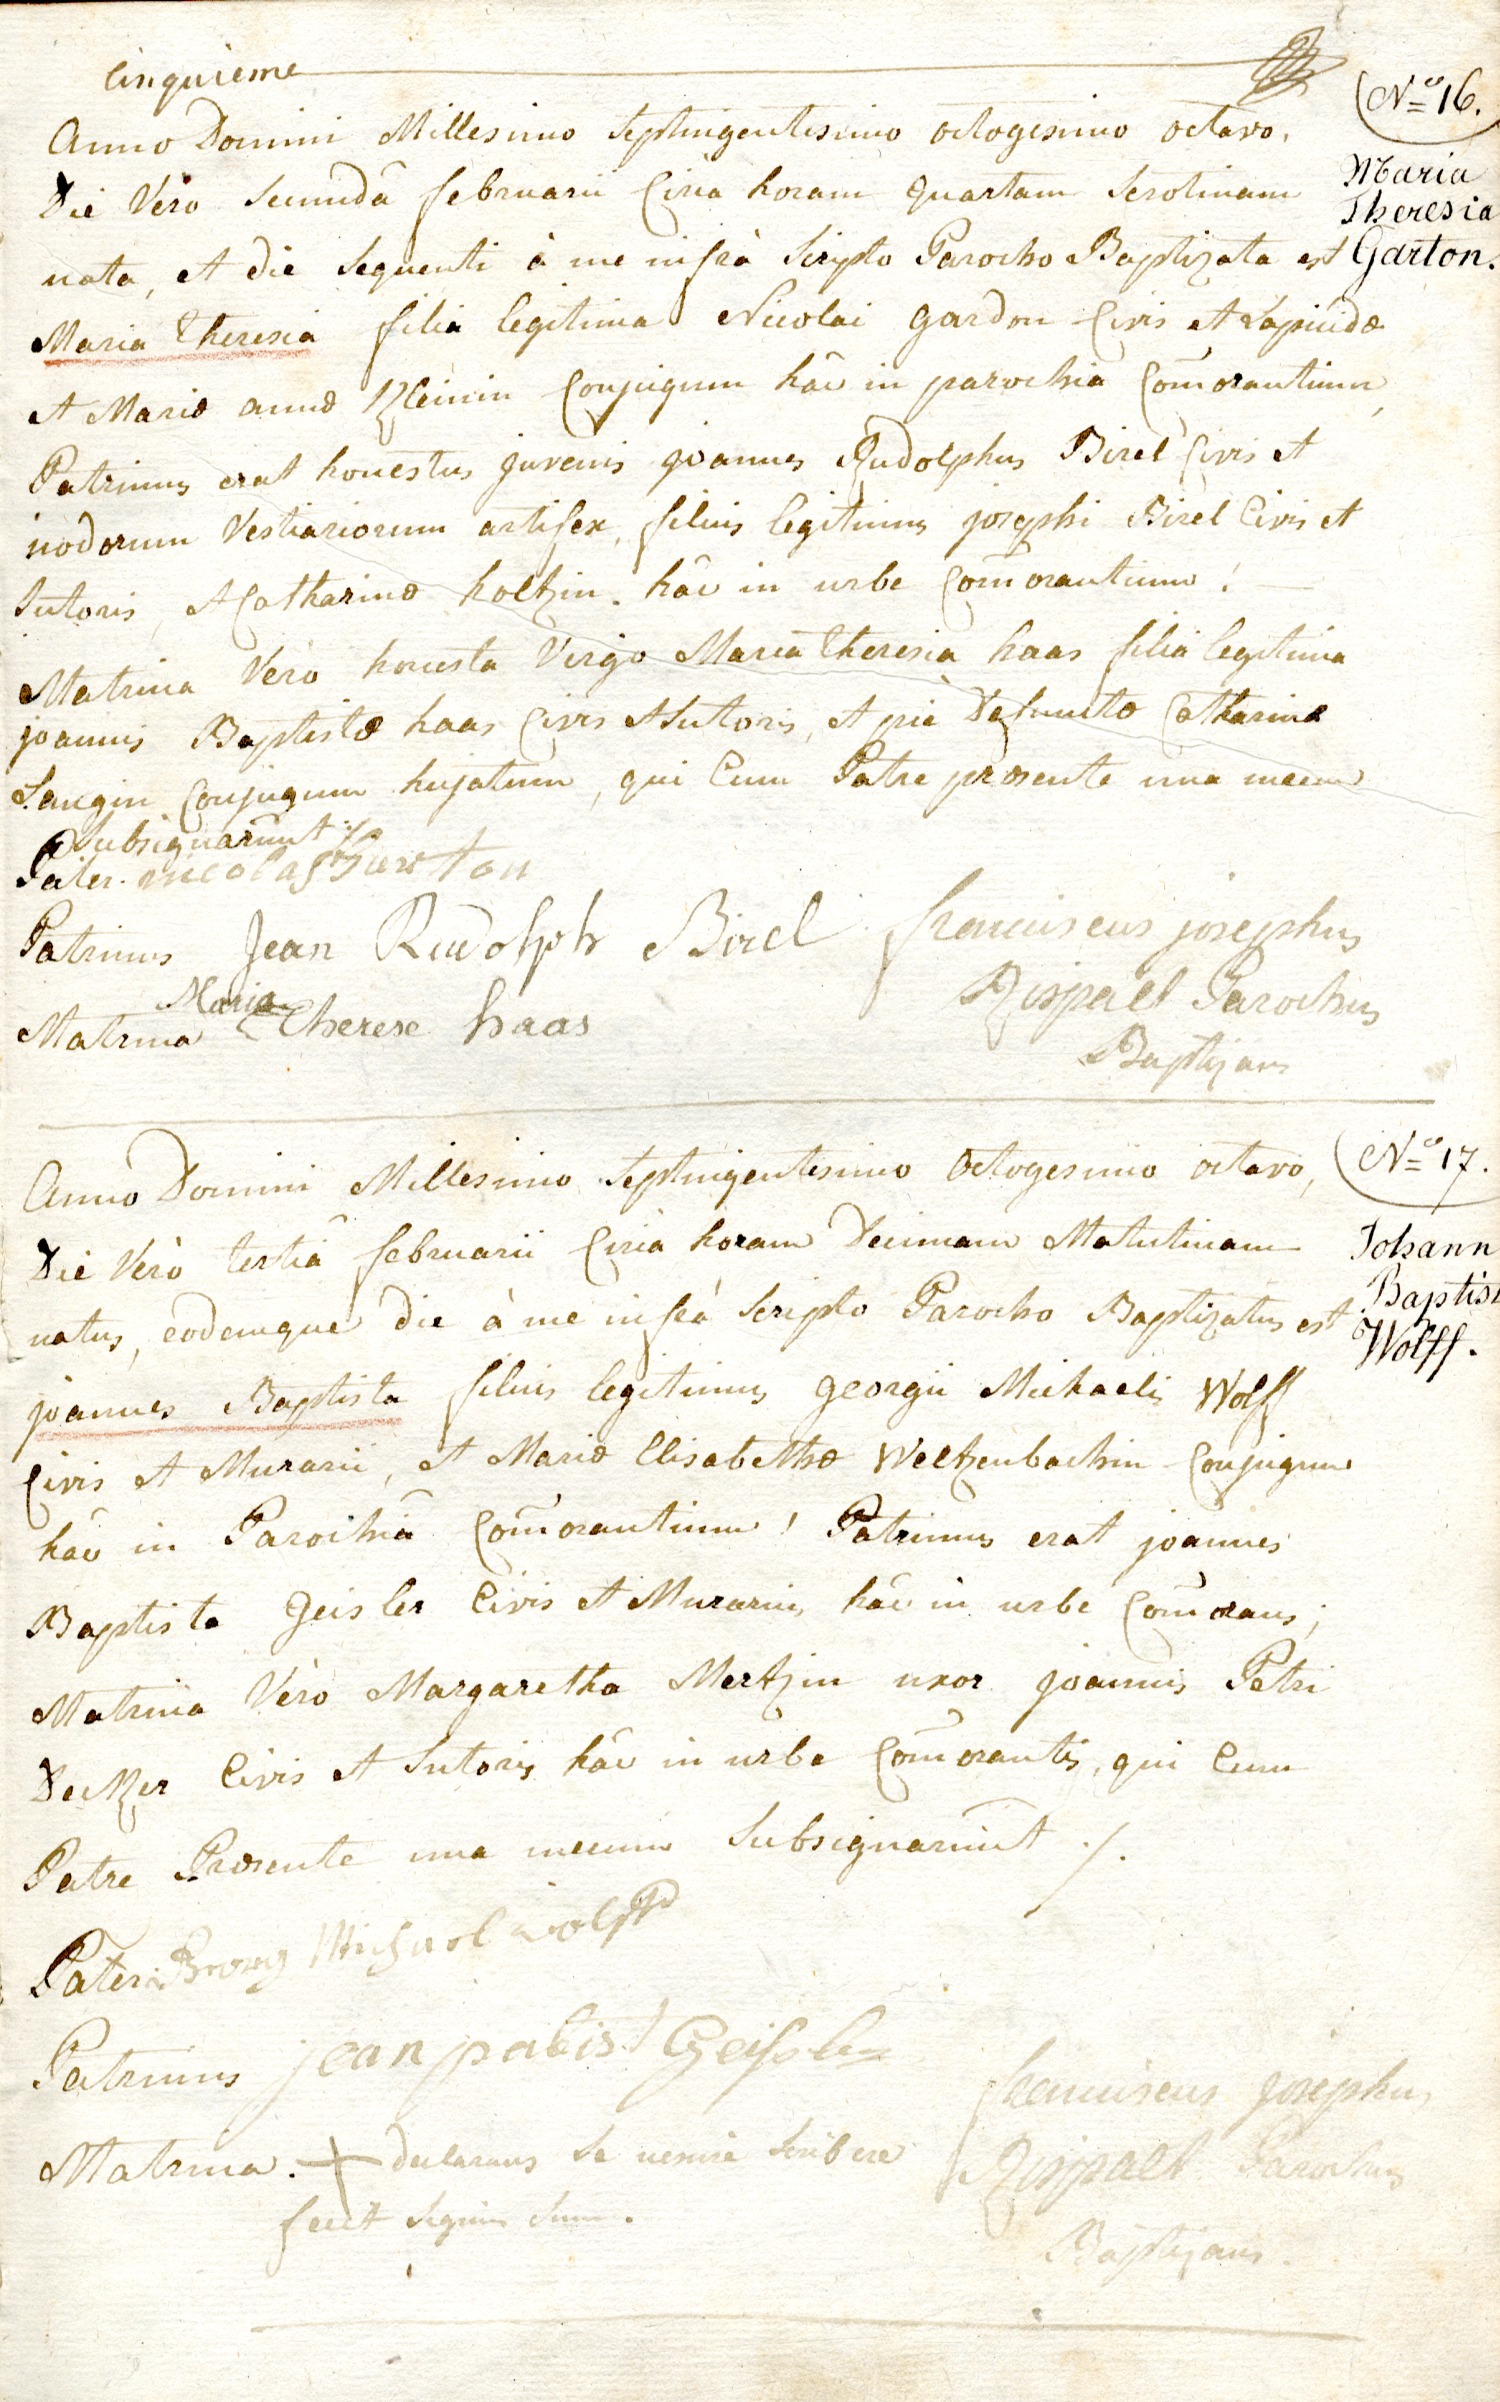 Cinquieme
Nº 16.
Anno Domini Millesimo Septingentesimo octogesimo octavo,
Die Vero Secundâ februarii Circa horam quartam Serotinam
Maria
Theresia
Garton.
nata, et die Sequenti à me infrà Scripto Parocho Baptizata est
Maria Theresia filia legitima Nicolai gardon Civis et Lapicidæ
et Mariæ annæ Kleinin Conjugum hâc in parochia Com̄orantium,
Patrinus erat honestus juvenis joannes Rudolphus Birel Civis et
nodorum Vestiariorum artifex, filius legitimus josephi Birel Civis et
Sutoris, et Catharinæ holtzin hâc in urbe Com̄orantium!
Matrina Vero honesta Virgo Maria Theresia haas filia legitima
joannis Baptistæ haas Civis et Sutoris, et piè Defunctæ Catharinæ
Langin Conjugum hujatum, qui Cum Patre præsente una mecum
Subsignarunt ./.
Pater. nicolas Garton
Patrinus Jean Rudolph Birel
Matrina Maria Therese haas
franciscus josephus
Rispalt Parochus
Baptizans
Nº 17.
Anno Domini Millesimo Septingentesimo Octogesimo octavo,
Die Vero tertiâ februarii Circa horam Decimam Matutinam
Johann
Baptist
Wolff.
natus, eodemque die à me infrà Scripto Parocho Baptizatus est
joannes Baptista filius legitimus georgii Michaelis Wolff
Civis et Murarii, et Mariæ Elisabethæ Weltzenbachin Conjugum
hâc in Parochiâ Com̄orantium! Patrinus erat joannes
Baptista geisler Civis et Murarius hâc in urbe Com̄orans;
Matrina Vero Margaretha Mertzin uxor joannis Petri
Decker Civis et Sutoris hâc in urbe Com̄orantis, qui Cum
Patre Præsente una mecum Subsignarunt ./.
Pater. Georg Michael Wolff
Patrinus jean pabist Geisler
Matrina. + declarans Se nescire Scribere
fecit Signum Suum.
franciscus josephus
Rispalt Parochus
Baptizans.